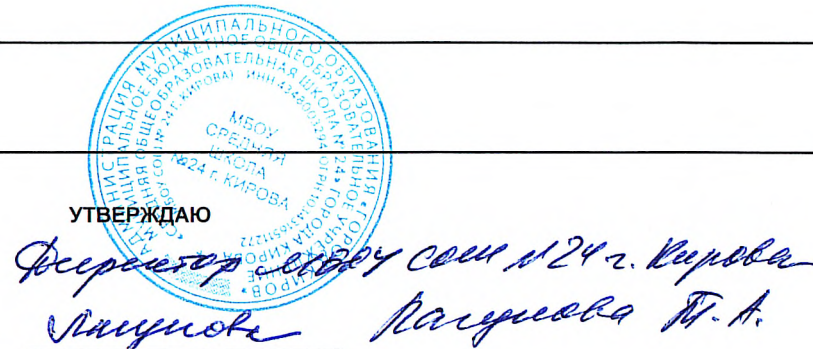 АДМИНИСТРАЦИЯ МУНИЦИПАЛЬНОГО ОБРАЗОВАНИЯ «ГОРОД КИРОВ»
МУНИЦИПАЛЬНОЕ БЮДЖЕТНОЕ ОБЩЕОБРАЗОВАТЕЛЬНОЕ УЧРЕЖДЕНИЕ
СРЕДНЯЯ ОБЩЕОБРАЗОВАТЕЛЬНАЯ ШКОЛА №24» ГОРОДА КИРОВА
МБОУ
СРЕДНЯЯ
ШКОЛА
№24 г. КИРОВА
УТВЕРЖДАЮ
Директор МБОУ СОШ №24 г. Кирова
Лагунова Т.А.